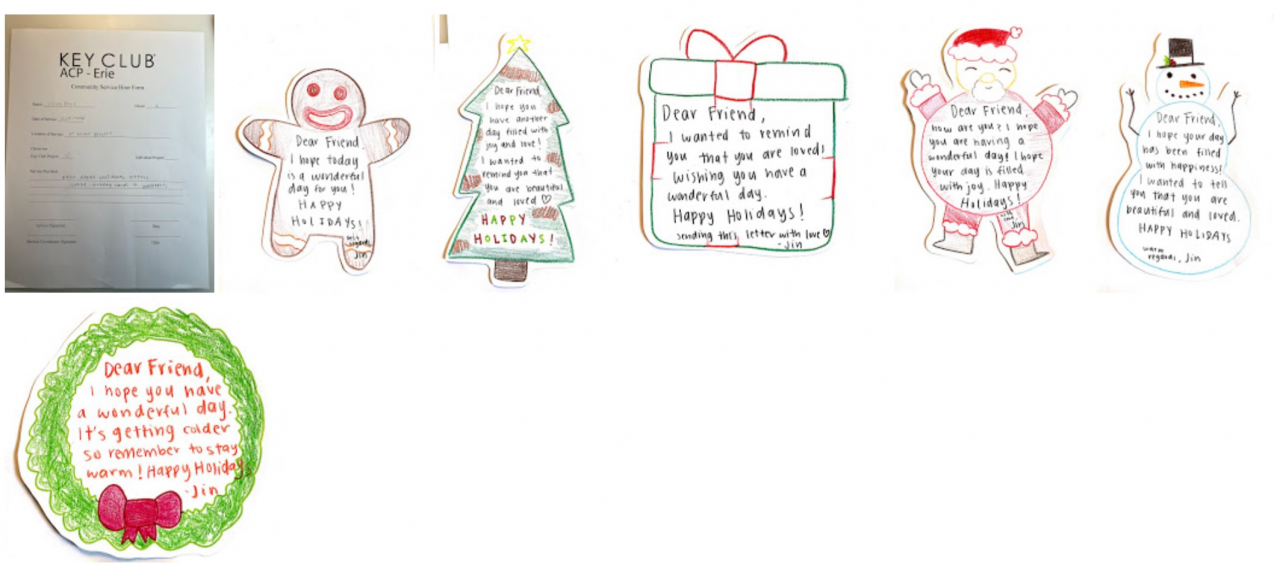 KEY CLUB
ACP - Erie
Community Service Hour Form
Dear Friend
I hope today
is a wonderful
day for you!
HAPPY
HOLIDAYS!
with
regards,
Jin
Dear Friend,
I hope you
have another
day filled with
joy and love!
I wanted to
remind you that
you are beautiful
and loved ♡
HAPPY
HOLIDAYS!
Dear Friend,
I wanted to remind
you that you are loved!
Wishing you have a
wonderful day.
Happy Holidays!
sending this letter with love ♡
-Jin
Dear Friend,
how are you? I hope
you are having a
wonderful day! I hope
your day is filled
with joy. Happy
Holidays!
Jin
Dear Friend,
I hope your day
has been filled
with happiness!
I wanted to tell
you that you are
beautiful and loved.
HAPPY HOLIDAYS
warm
regards, Jin
Dear Friend,
I hope you have
a wonderful day.
It's getting colder
so remember to stay
warm! Happy Holidays
-Jin